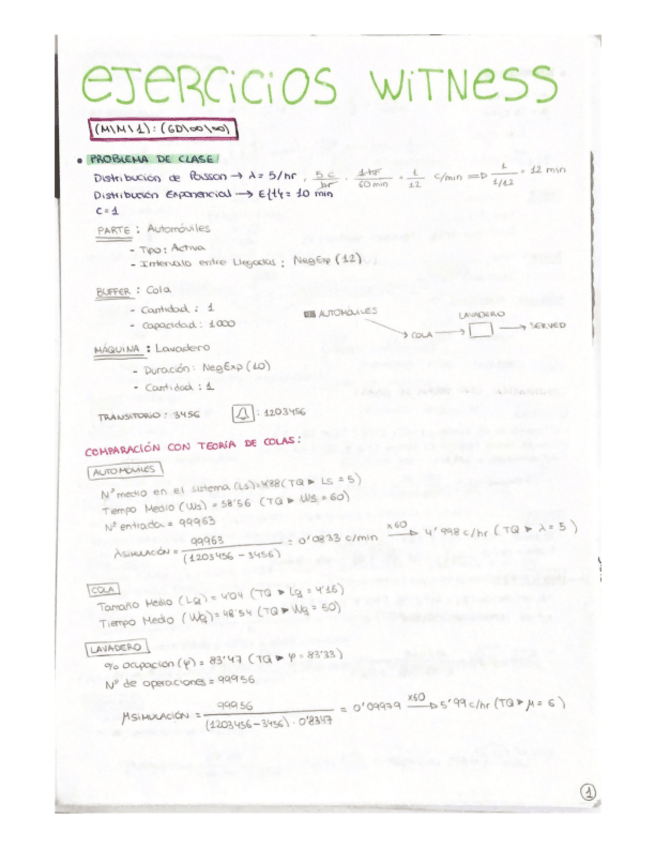 EJERCICIOS WITNESS
(M\M\1):(GD\∞\∞)
• PROBLEMA DE CLASE
Distribución de Poisson → λ = 5/hr , 5 c/hr · 1 hr/60 min = 1/12 c/min ⇒ 1/(1/12) = 12 min
Distribución Exponencial → E{t} = 10 min
C = 1
PARTE : Automóviles
- Tipo: Activa
- Intervalo entre llegadas : NegExp (12)
BUFFER : Cola
- Cantidad : 1
- Capacidad : 1000
AUTOMÓVILES → COLA → LAVADERO → SERVED
MÁQUINA : Lavadero
- Duración : NegExp (10)
- Cantidad : 1
TRANSITORIO : 3456 : 1203456
COMPARACIÓN CON TEORÍA DE COLAS :
AUTOMÓVILES
Nº medio en el sistema (Ls) = 4'88 (TQ ► Ls = 5)
Tiempo Medio (Ws) = 58'56 (TQ ► Ws = 60)
Nº entrada = 99963
λSIMULACIÓN = 99963/(1203456 - 3456) = 0'0833 c/min x60 → 4'998 c/hr (TQ ► λ = 5)
COLA
Tamaño Medio (Lq) = 4'04 (TQ ► Lq = 4'16)
Tiempo Medio (Wq) = 48'54 (TQ ► Wq = 50)
LAVADERO
% ocupación (φ) = 83'47 (TQ ► φ = 83'33)
Nº de operaciones = 99956
μSIMULACIÓN = 99956/((1203456-3456) · 0'8347) = 0'09979 x60 → 5'99 c/hr (TQ ► μ = 6)
1